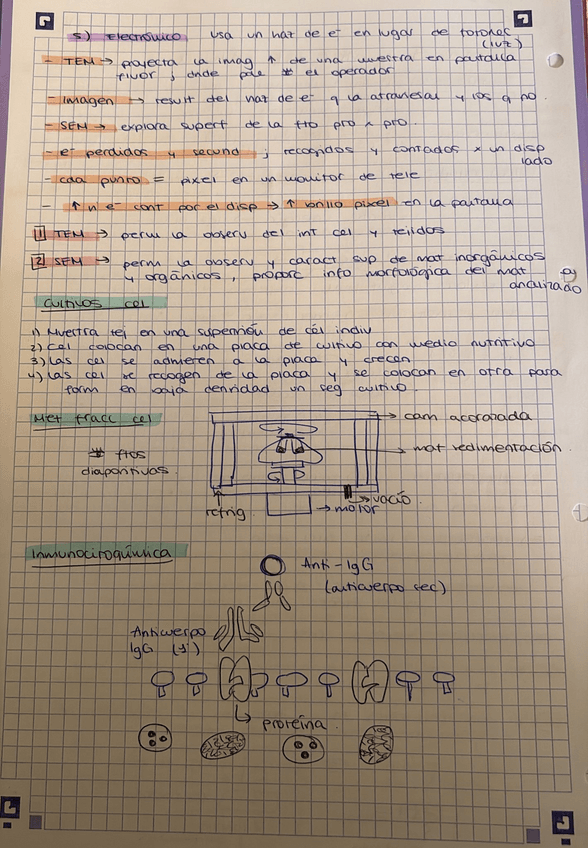 5) Electrónico usa un haz de e⁻ en lugar de fotones
(luz)
- TEM → proyecta la imag ↑ de una muestra en pantalla
fluor ; dnde pde el operador
- Imagen → result del haz de e⁻ q la atraviesa y los q no.
- SEM → explora superf de la pto pro x pro.
- e⁻ perdidos y secund ; recogidos y contados x un disp
lado
- cda punto = pixel en un monitor de tele
- ↑ n e⁻ cont por el disp → ↑ brillo pixel en la pantalla
1 TEM → perm la observ del int cel y tejidos
2 SEM → perm la observ y caract sup de mat inorgánicos
y orgánicos, proporc info morfológica del mat
analizado
Cultivos cel
1) Muestra tej en una suspensión de cél indiv
2) Cel colocan en una placa de cultivo con medio nutritivo
3) Las cel se adhieren a la placa y crecen
4) Las cel se recogen de la placa y se colocan en otra para
form en baja densidad un seg cultivo.
Met fracc cel
→ cam acorazada
ftos
diapositivas
→ mat sedimentación
refrig
→ motor
→ vacío
Inmunocitoquímica
Anti-IgG
(anticuerpo sec)
Anticuerpo
IgG (1º)
proteína